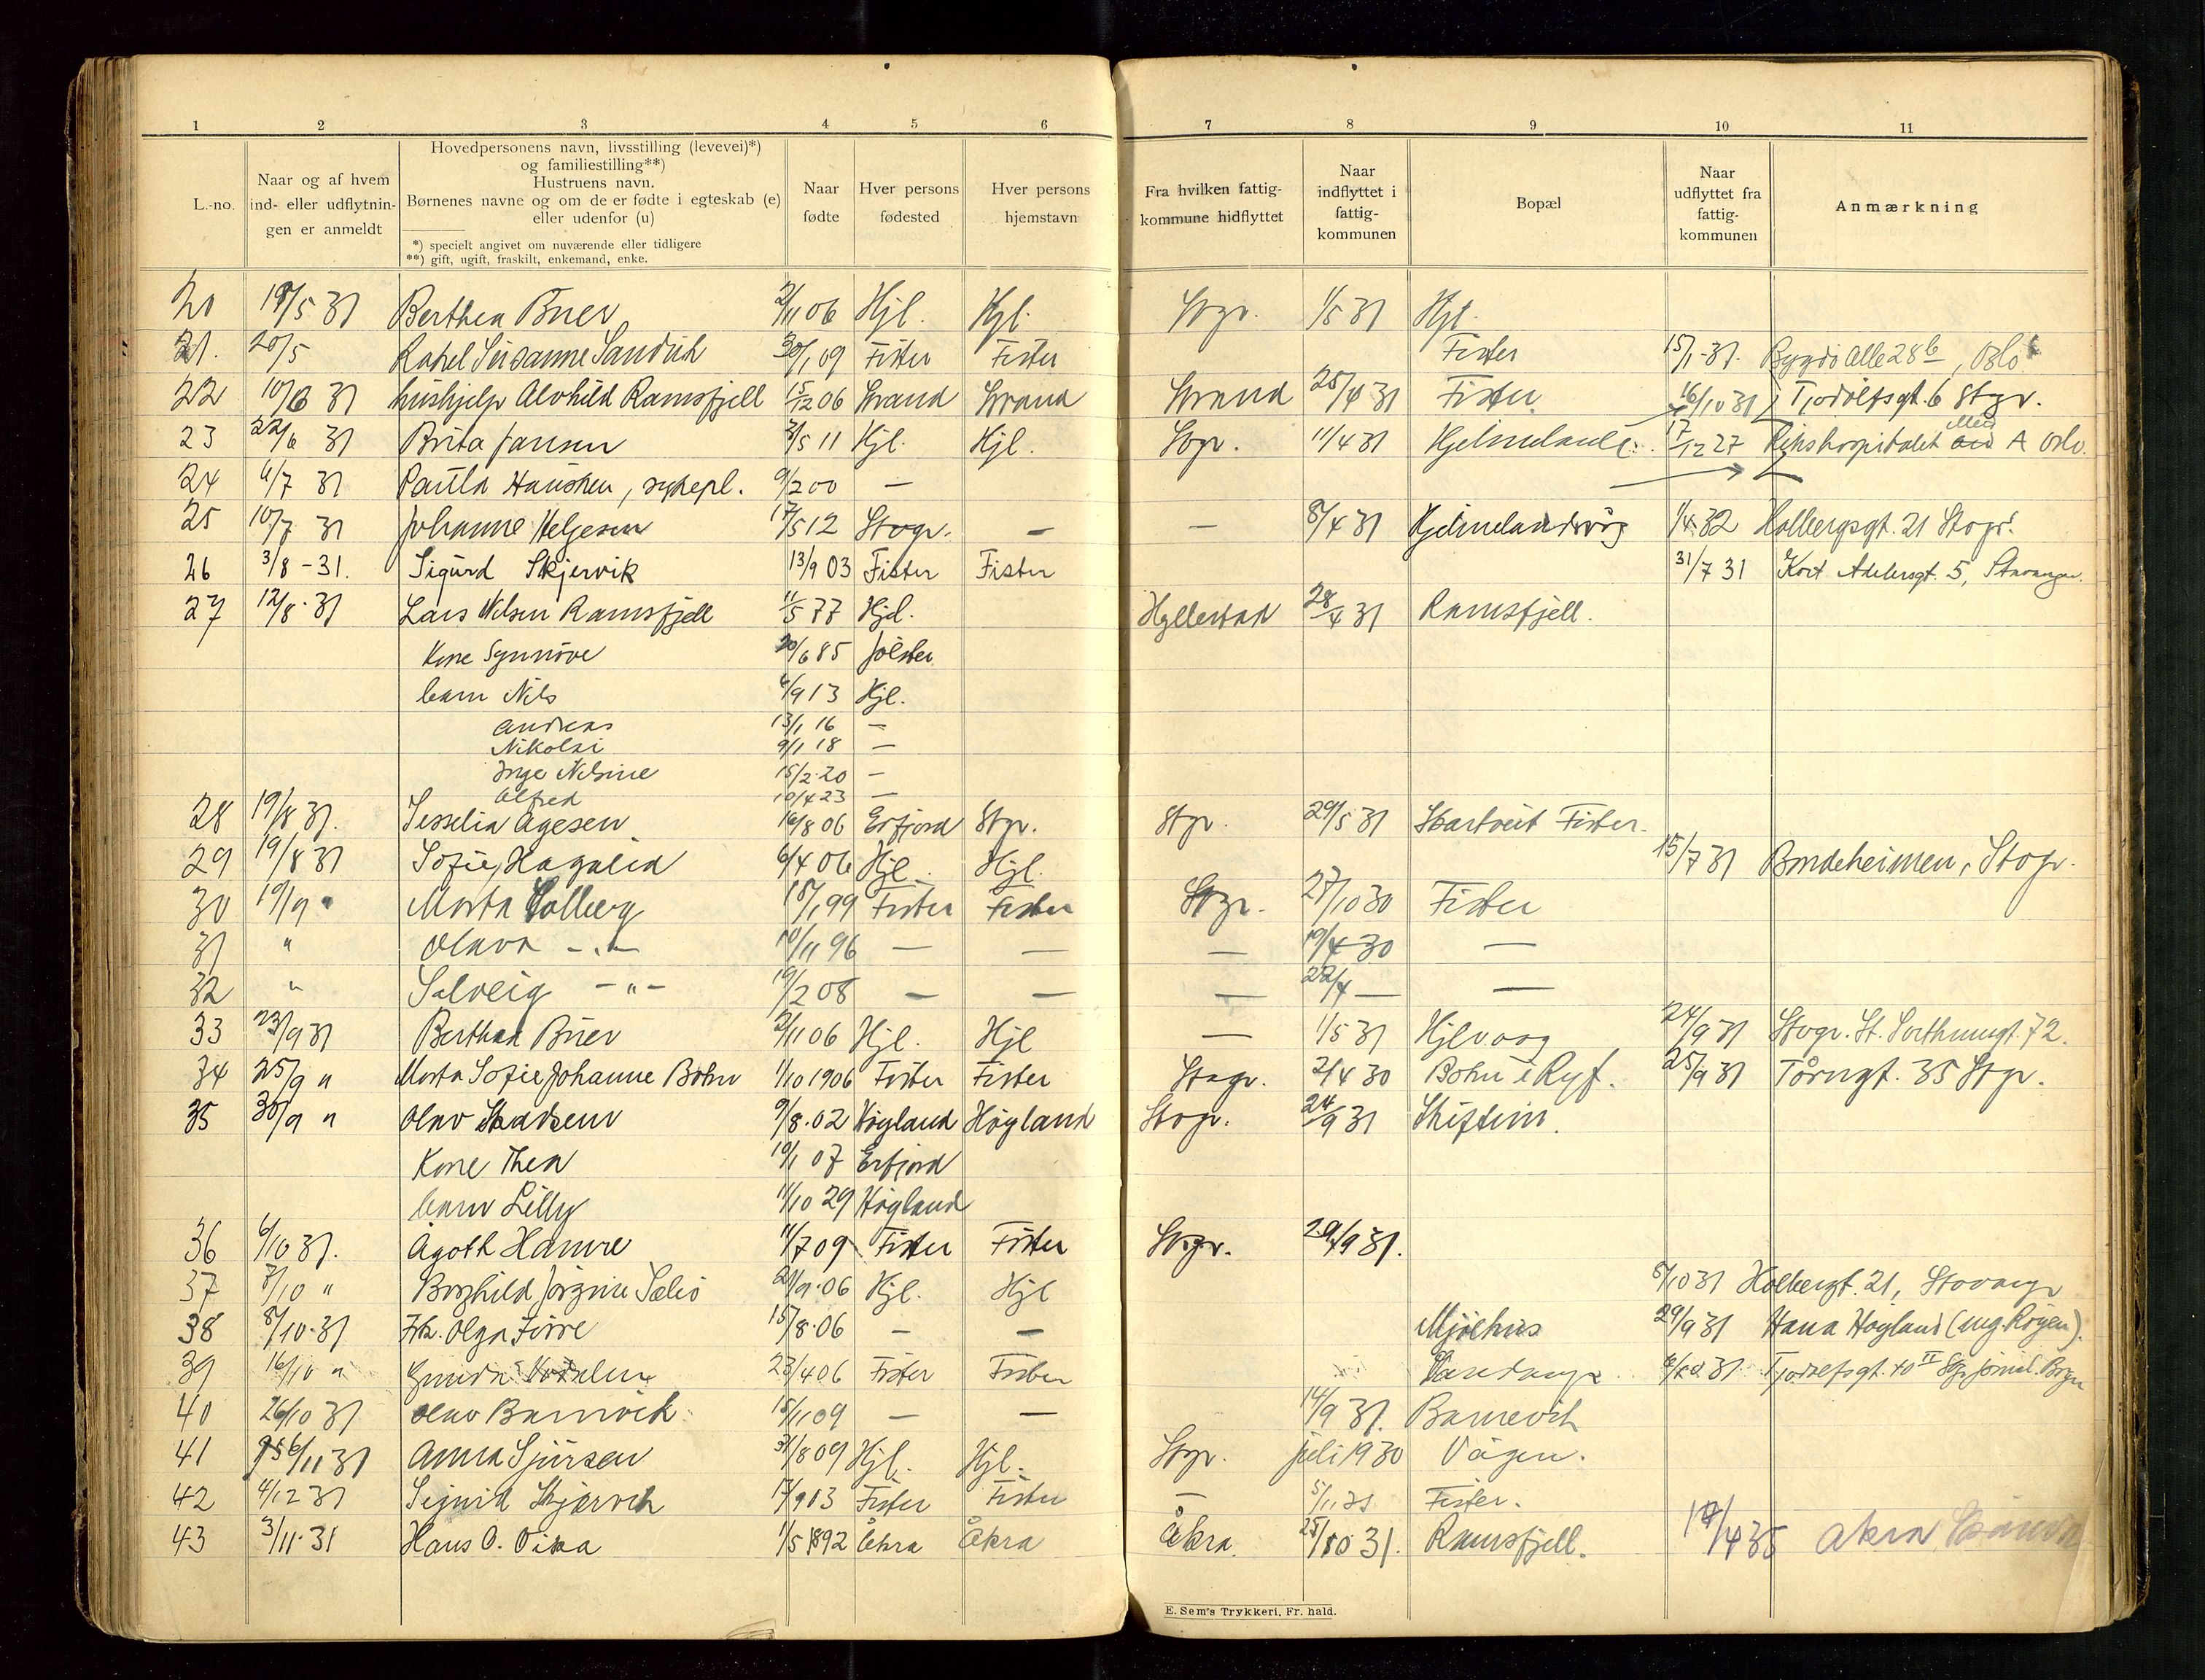 1 2 3 4 5 6 7 8 9 10 11
L.-no.
Naar og af hvem
ind- eller udflytnin-
gen er anmeldt
Hovedpersonens navn, livsstilling (levevei)*)
og familiestilling**)
Hustruens navn.
Børnenes navne og om de er fødte i egteskab (e)
eller udenfor (u)
*) specielt angivet om nuværende eller tidligere
**) gift, ugift, fraskilt, enkemand, enke.
Naar
fødte
Hver persons
fødested
Hver persons
hjemstavn
Fra hvilken fattig-
kommune hidflyttet
Naar
indflyttet i
fattig-
kommunen
Bopæl
Naar
udflyttet fra
fattig-
kommunen
Anmærkning
20 19/5 31 Berthea Buer 2/11 06 Hjl. Hjl. Svgr. 1/5 31 Hjl.
21. 20/5 Rakel Susanne Sandvik 30/1 09 Fister Fister Fister 15/1-31. Bygdø Alle 28 b, Oslo
22 10/6 31 hushjelp Alvhild Ramsfjell 15/12 06 Strand Strand Strand 25/4 31 Fister 16/10 31 Tjodolfsgt. 6 Stgr.
23 22/6 31 Brita Jansen 3/5 11 Hjl. Hjl. Svgr. 11/4 31 Hjelmeland 17/12 27 Rikshospitalet Med A Oslo.
24 6/7 31 Paula Haushen, sykepl. 9/2 00 —
25 10/7 31 Johanne Helgesen 17/5 12 Stvgr. — — 8/4 31 Hjelmelandsvåg 1/4 32 Holbergsgt. 21 Stvgr.
26 3/8-31. Sigurd Skjervik 13/9 03 Fister Fister 31/7 31 Kort Adelersgt. 5, Stavanger.
27 12/8-31 Lars Nilsen Ramsfjell 11/5 77 Hjl. Hyllestad 28/4 31 Ramsfjell.
Kone Synnöve 20/6 85 Jölster
barn Nils 4/9 13 Hjl.
Andreas 13/1 16 —
Nikolai 9/1 18 —
Inge Nilsine 15/2-20 —
Alfred 10/4 23 —
28 19/8 31. Sesselia Agesen 16/8 06 Erfjord Stgr. Stgr. 29/5 31 Skartveit Fister.
29 19/8 31 Sofie Hagalid 6/4 06 Hjl. Hjl. 15/7 31 Bondeheimen, Stvgr.
30 19/9 " Marta Solberg 18/1 99 Fister Fister Stvgr. 27/10 30 Fister
31 " Olava -"- 10/11 96 — — — 19/4 30 —
32 " Solveig -"- 19/2 08 — — — 22/4 — —
33 23/9 31 Berthea Buer 2/11 06 Hjl. Hjl — 1/5 31 Hjlvaag 24/9 31 Stvgr. St. 72.
34 25/9 " Marta Sofie Johanne Bøhn 1/10 1906 Fister Fister Stvgr. 2/4 30 Bøhn i Ryf. 25/9 31 Tårngt. 35 Stgr.
35 30/9 " Olav 9/8-02 Høgland Høgland Stvgr. 24/9 31 Skiftun.
Kone Thea 19/1 07 Erfjord
barn Lilly 11/10 29 Høgland
36 6/10 31. Agoth Hamre 11/7 09 Fister Fister Svgr. 29/9 31.
37 7/10 " Borghild Jørgine Sælid 21/9-06 Hjl. Hjl 5/10 31 Holbergt. 21, Stavanger
38 8/10-31 Frk. Olga Førre 15/8-06 — — Mjølhus 29/9 31 Hana Høgland (ung. Røgen).
39 16/10 " Gunda 23/4 06 Fister Fister 31 Tjodolfsgt. 40 II
40 26/10 31 Olav Barnvik 15/11 09 — — 14/9 31. Barnevik
41 6/11 31 Anna Sjursen 31/8 09 Hjl. Hjl. Svgr. juli 1930 Vågen.
42 4/12 31 Sigurd Skjørvik 17/9 13 Fister Fister — 5/11 31 Fister.
43 3/11-31 Hans O. Vika 1/5 1892 Åkra Åkra Åkra. 25/10 31. Ramsfjell. 17/4 35 Akra
E. Sem's Trykkeri, Fr. hald.